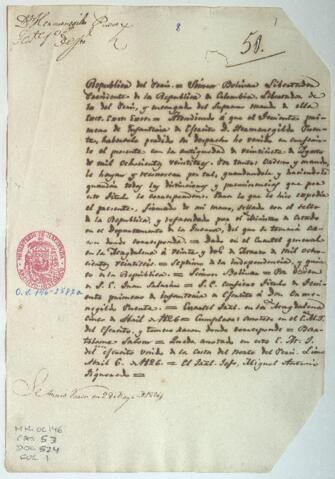 Dn. Hermenegildo
8
50.
Republica del Perú. = Simon Bolivar Libertador
Presidente de la Republica de Colombia, Libertador de
la del Perú, y encargado del Supremo mando de ella
&a. &a. &a. = Atendiendo á que el Teniente pri
mero de Infanteria de Exercito D. Hermenegildo
habersele perdido su despacho he venido en
el presente con la antiguedad de de Agosto
de mil ochocientos veintitres. Por tanto: Ordeno y mando,
le hayan y reconozcan por tal, guardandole y haciendole
guardar todas las distinciones y preeminencias que por
este titulo le corresponden: Para lo que le hice expedir
el presente, firmado de mi mano, sellado con el sello
de la Republica, y refrendado por el Ministro de Estado
en el Departamento de la Guerra, del que se tomará ra
zon donde corresponda. = Dado en el Cuartel general
en la Magdalena á veinte y de Marzo de mil ocho
cientos veintiseis = Septimo de la Independencia, y quin
to de la Republica. = Simon Bolivar = Por orden
de S. E. Juan Salazar = S. E. confiere titulo de Tenien
te primero de Infanteria de Exercito á Don Herme
negildo = Cuartel Jral. en la Magdalena
de Abril 1826 = Cumplase, anotese en el E. M. J.
del Exercito, y tomese razon donde corresponde = Bar
tolomé Salom = Queda anotado en este E. M. J.
del exercito unido de la Costa del Norte del Perú. Lima
Abril 6. de 1826. = El Jral. Jefe, Miguel Antonio
Figueredo =
Se tomó razon en 29 de Mayo de
O.L. 146-2877a
MH-OL 146
CAJ. 53
DOC. 524
FOL. 1